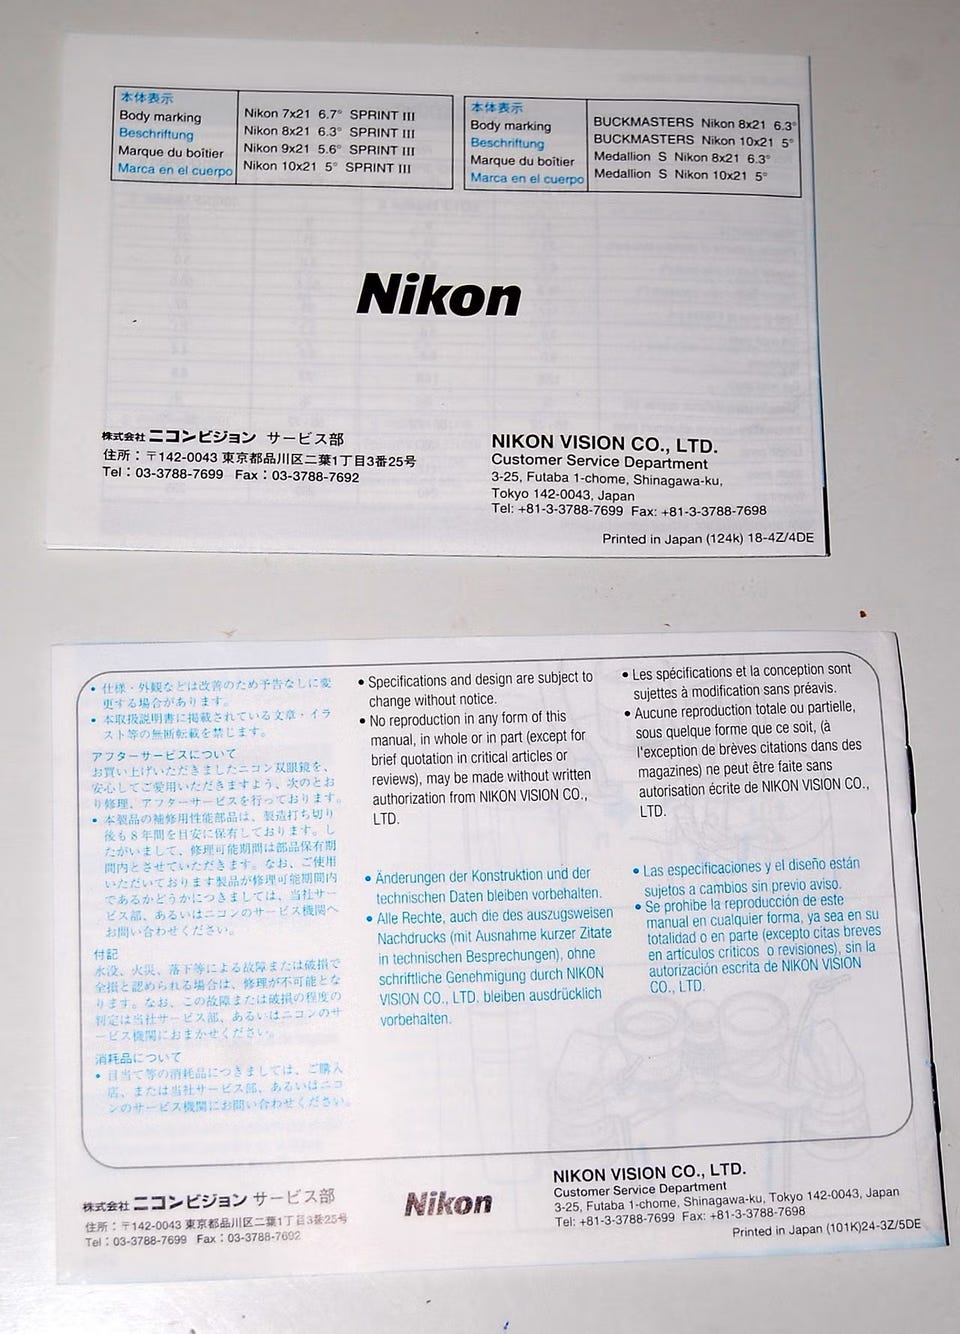 本体表示
Body marking
Beschriftung
Marque du boîtier
Marca en el cuerpo
Nikon 7x21 6.7° SPRINT III
Nikon 8x21 6.3° SPRINT III
Nikon 9x21 5.6° SPRINT III
Nikon 10x21 5° SPRINT III
本体表示
Body marking
Beschriftung
Marque du boîtier
Marca en el cuerpo
BUCKMASTERS Nikon 8x21 6.3°
BUCKMASTERS Nikon 10x21 5°
Medallion S Nikon 8x21 6.3°
Medallion S Nikon 10x21 5°
Nikon
株式会社 ニコンビジョン サービス部
住所：〒142-0043 東京都品川区二葉1丁目3番25号
Tel：03-3788-7699 Fax：03-3788-7692
NIKON VISION CO., LTD.
Customer Service Department
3-25, Futaba 1-chome, Shinagawa-ku,
Tokyo 142-0043, Japan
Tel: +81-3-3788-7699 Fax: +81-3-3788-7698
Printed in Japan (124k) 18-4Z/4DE
• 仕様・外観などは改善のため予告なしに変
更する場合があります。
• 本取扱説明書に掲載されている文章・イラ
スト等の無断転載を禁じます。
アフターサービスについて
お買い上げいただきましたニコン双眼鏡を、
安心してご愛用いただきますよう、次のとお
り修理、アフターサービスを行っております。
• 本製品の補修用性能部品は、製造打ち切り
後も8年間を目安に保有しております。し
たがいまして、修理可能期間は部品保有期
間内とさせていただきます。なお、ご使用
いただいております製品が修理可能期間内
であるかどうかにつきましては、当社サー
ビス部、あるいはニコンのサービス機関へ
お問い合わせください。
付記
水没、火災、落下等による故障または破損で
全損と認められる場合は、修理が不可能とな
ります。なお、この故障または破損の程度の
判定は当社サービス部、あるいはニコンのサ
ービス機関におまかせください。
消耗品について
• 目当て等の消耗品につきましては、ご購入
店、または当社サービス部、あるいはニコ
ンのサービス機関にお問い合わせください。
• Specifications and design are subject to
change without notice.
• No reproduction in any form of this
manual, in whole or in part (except for
brief quotation in critical articles or
reviews), may be made without written
authorization from NIKON VISION CO.,
LTD.
• Les spécifications et la conception sont
sujettes à modification sans préavis.
• Aucune reproduction totale ou partielle,
sous quelque forme que ce soit, (à
l'exception de brèves citations dans des
magazines) ne peut être faite sans
autorisation écrite de NIKON VISION CO.,
LTD.
• Änderungen der Konstruktion und der
technischen Daten bleiben vorbehalten.
• Alle Rechte, auch die des auszugsweisen
Nachdrucks (mit Ausnahme kurzer Zitate
in technischen Besprechungen), ohne
schriftliche Genehmigung durch NIKON
VISION CO., LTD. bleiben ausdrücklich
vorbehalten.
• Las especificaciones y el diseño están
sujetos a cambios sin previo aviso.
• Se prohibe la reproducción de este
manual en cualquier forma, ya sea en su
totalidad o en parte (excepto citas breves
en artículos criticos o revisiones), sin la
autorización escrita de NIKON VISION
CO., LTD.
株式会社 ニコンビジョン サービス部
住所：〒142-0043 東京都品川区二葉1丁目3番25号
Tel：03-3788-7699 Fax：03-3788-7692
Nikon
NIKON VISION CO., LTD.
Customer Service Department
3-25, Futaba 1-chome, Shinagawa-ku, Tokyo 142-0043, Japan
Tel: +81-3-3788-7699 Fax: +81-3-3788-7698
Printed in Japan (101K)24-3Z/5DE